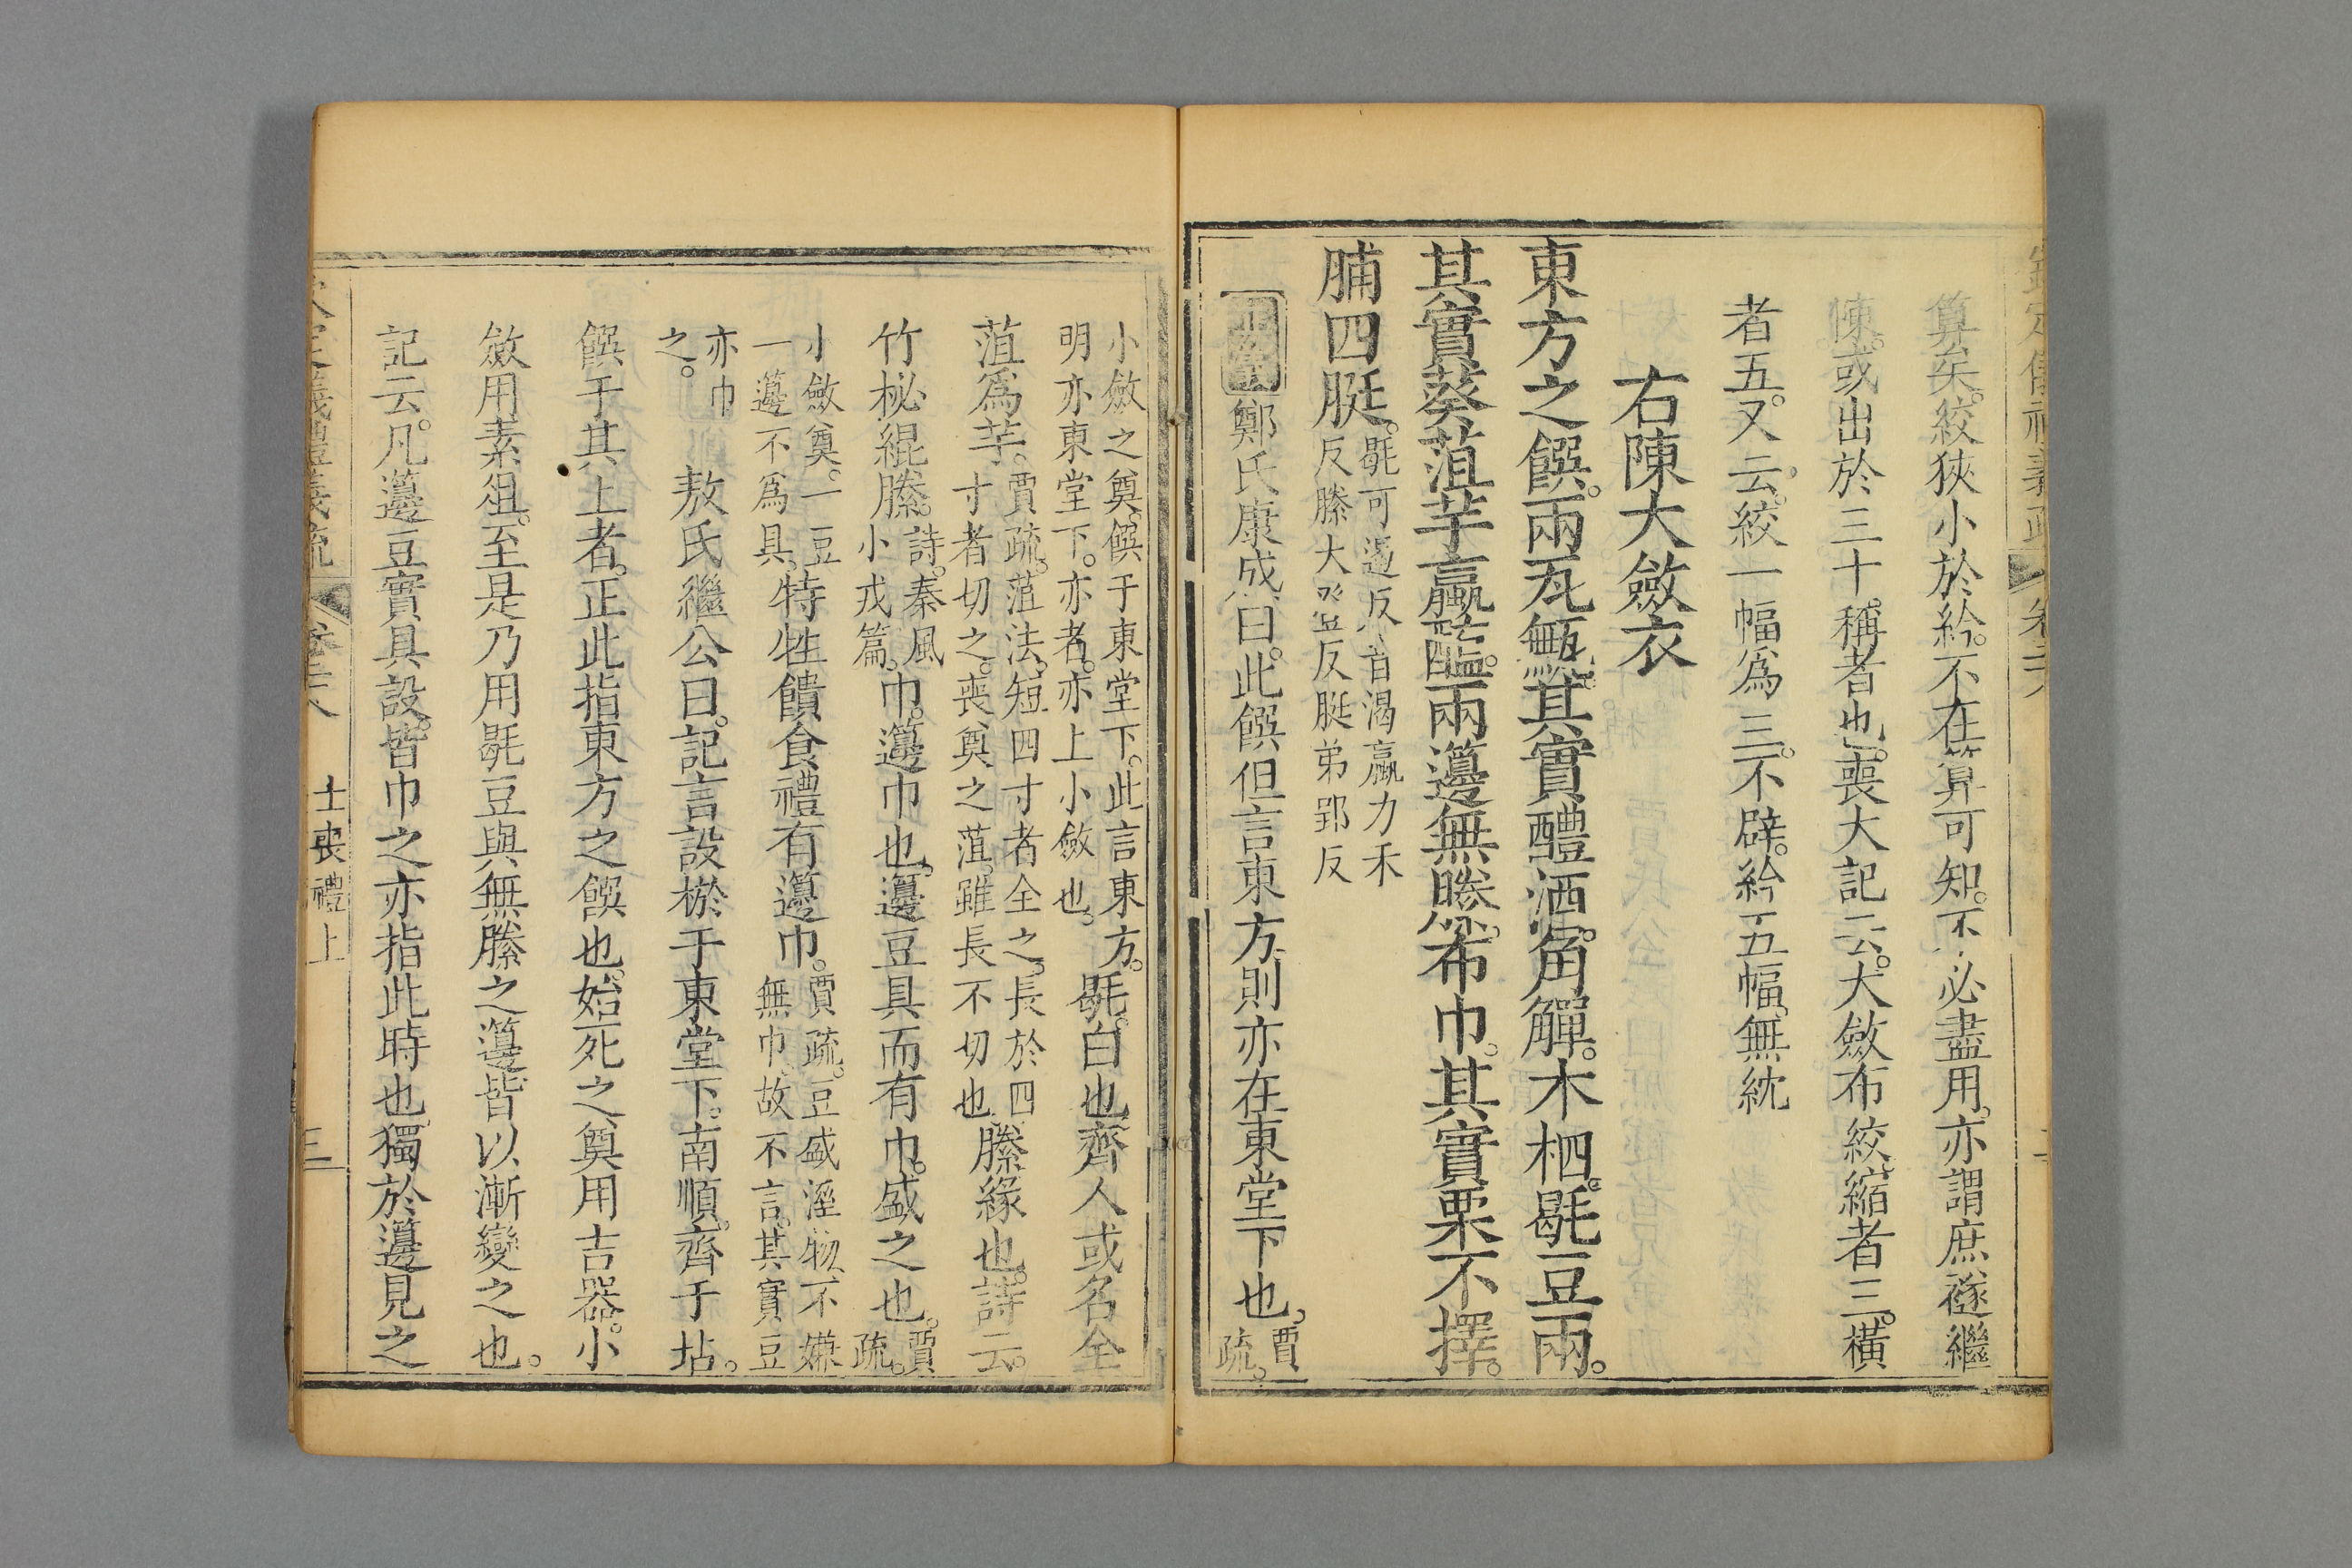 算矣。絞狹小於紟。不在算可知。不必盡用。亦謂庶襚繼
陳。或出於三十稱者也。喪大記云。大斂布絞。縮者三。橫
者五。又云。絞一幅爲三。不辟。紟五幅。無紞
右陳大斂衣
東方之饌。兩瓦甒。其實醴酒。角觶。木柶。毼豆兩。
其實葵菹芋。蠃醢。兩籩無縢。布巾。其實栗不擇。
脯四脡。
毼可遏反又音渴蠃力禾
反縢大登反脡弟郢反
正義 鄭氏康成曰。此饌但言東方。則亦在東堂下也。
賈
疏。
小斂之奠。饌于東堂下。此言東方。
明亦東堂下。亦者。亦上小斂也。
毼。白也。齊人或名全
菹爲芋。
賈疏。菹法。短四寸者全之。長於四
寸者切之。喪奠之菹。雖長不切也。
縢緣也。詩云。
竹柲緄縢。
詩。秦風
小戎篇。
巾。籩巾也。籩豆具而有巾。盛之也。
賈
疏。
小斂奠。一豆
一籩不爲具。
特牲饋食禮有籩巾。
賈疏。豆盛溼物。不嫌
無巾。故不言。其實豆
亦巾
之。
敖氏繼公曰。記言設棜于東堂下。南順。齊于坫。
饌于其上者。正此指東方之饌也。始死之奠用吉器。小
斂用素俎。至是乃用毼豆與無縢之籩。皆以漸變之也。
記云。凡籩豆實具設。皆巾之。亦指此時也。獨於籩見之
士喪禮上
三